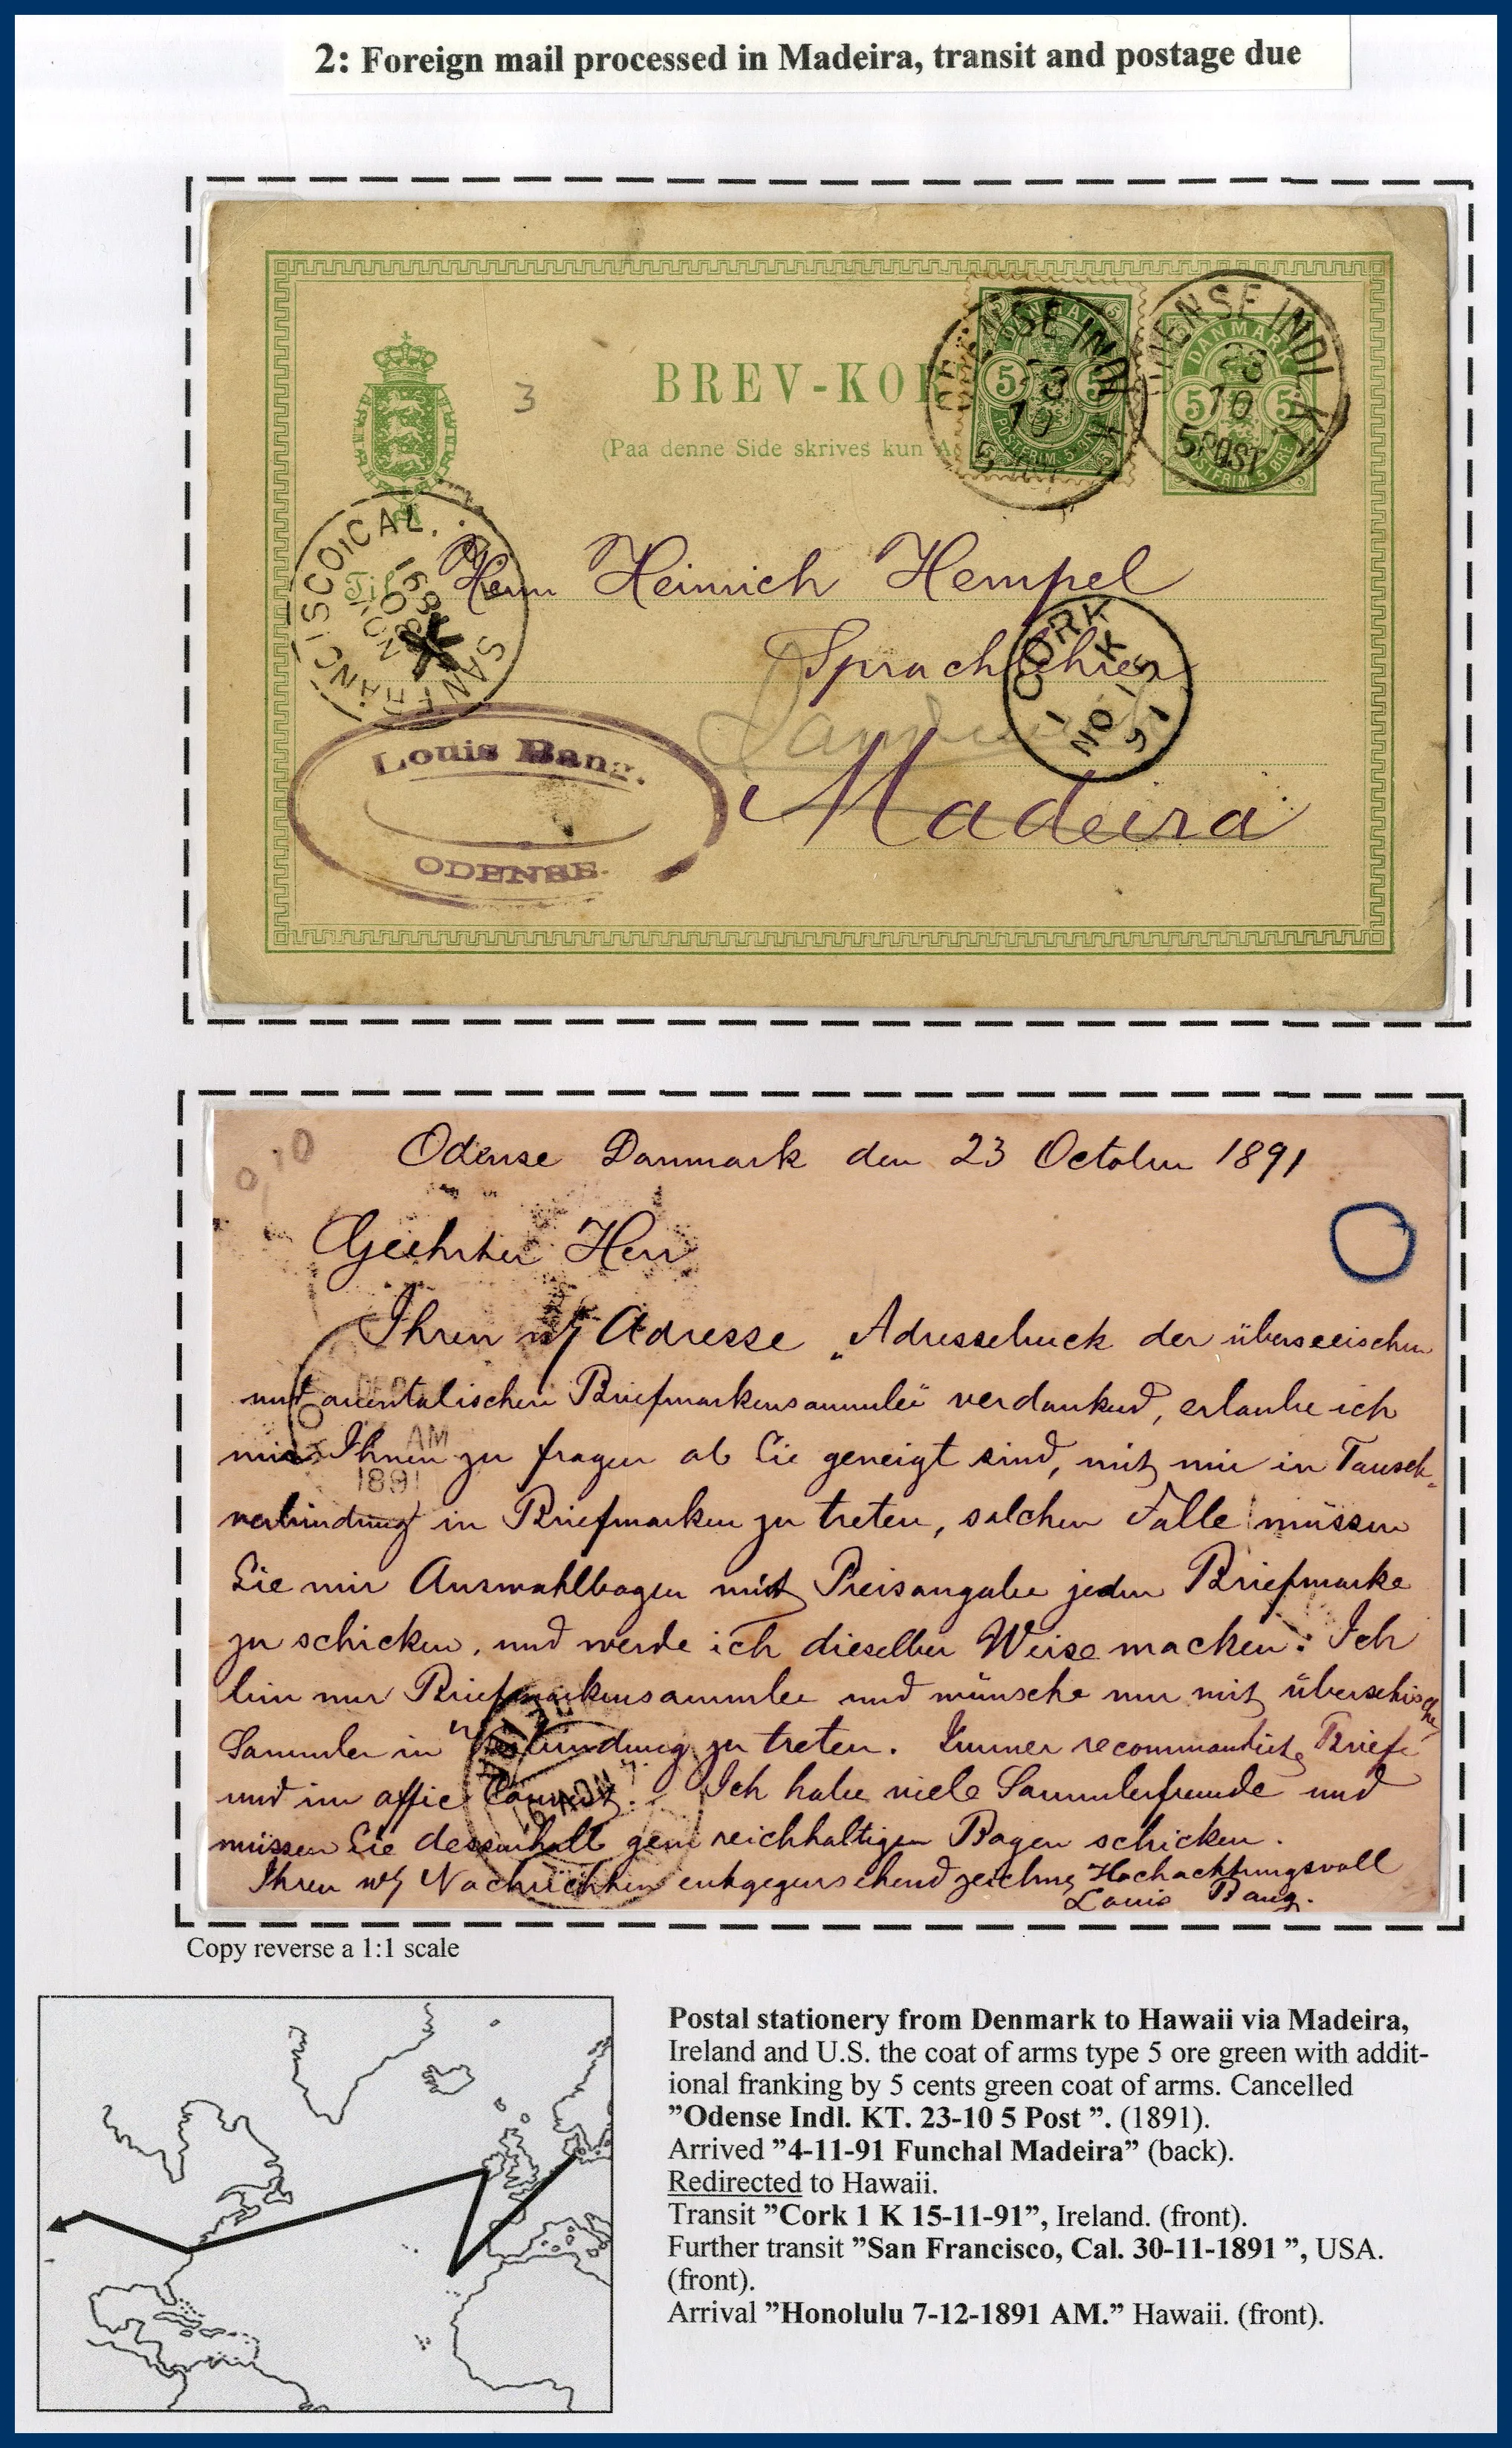 2: Foreign mail processed in Madeira, transit and postage due
BREV-KOR
(Paa denne Side skrives kun A
DANMARK
5 5
POSTFRIM. 5 ØRE
DANMARK
5 5
POSTFRIM. 5 ØRE
ODENSE INDL. KT.
23
10
5 POST
ODENSE INDL. KT.
23
10
5 POST
SAN FRANCISCO, CAL.
NOV
30
1891
Til
Herrn Heinrich Hempel
Sprachlehrer
CORK
1 K
NO 15
91
Madeira
Louis Bang.
ODENSE.
3
0,10
Odense Danmark den 23 October 1891
Geehrter Herr
Ihren w/ Adresse „Adressebuck der überseeischen
und orientalischen Briefmarkensammler" verdankend, erlaube ich
mir Ihnen zu fragen ob Sie geneigt sind, mit mir in Tausch-
verbindung in Briefmarken zu treten, solchen Falle müssen
Sie mir Auswahlbogen mit Preisangabe jeden Briefmarke
zu schicken, und werde ich dieselben Weise macken. Ich
bin nur Briefmarkensammler und wünsche nur mit überseeische
Sammler in Verbindung zu treten. Immer recommandirte Briefe
und im offic Convert. Ich habe viele Sammlerfreunde und
müssen Sie dessenhalb gern reichhaltigen Bogen schicken.
Ihren w/ Nachrichten entgegensehend zeichne Hochachtungsvoll
Louis Bang.
DEC
AM
1891
Copy reverse a 1:1 scale
Postal stationery from Denmark to Hawaii via Madeira,
Ireland and U.S. the coat of arms type 5 ore green with addit-
ional franking by 5 cents green coat of arms. Cancelled
”Odense Indl. KT. 23-10 5 Post ”. (1891).
Arrived ”4-11-91 Funchal Madeira” (back).
Redirected to Hawaii.
Transit ”Cork 1 K 15-11-91”, Ireland. (front).
Further transit ”San Francisco, Cal. 30-11-1891 ”, USA.
(front).
Arrival ”Honolulu 7-12-1891 AM.” Hawaii. (front).